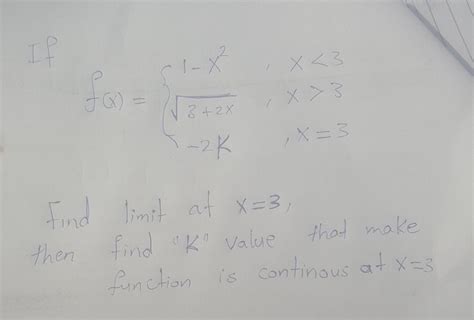 If
1-x² , x<3
f(x) = { √3+2x , x>3
-2K , x=3
Find limit at x=3,
then find "K" value that make
function is continous at x=3